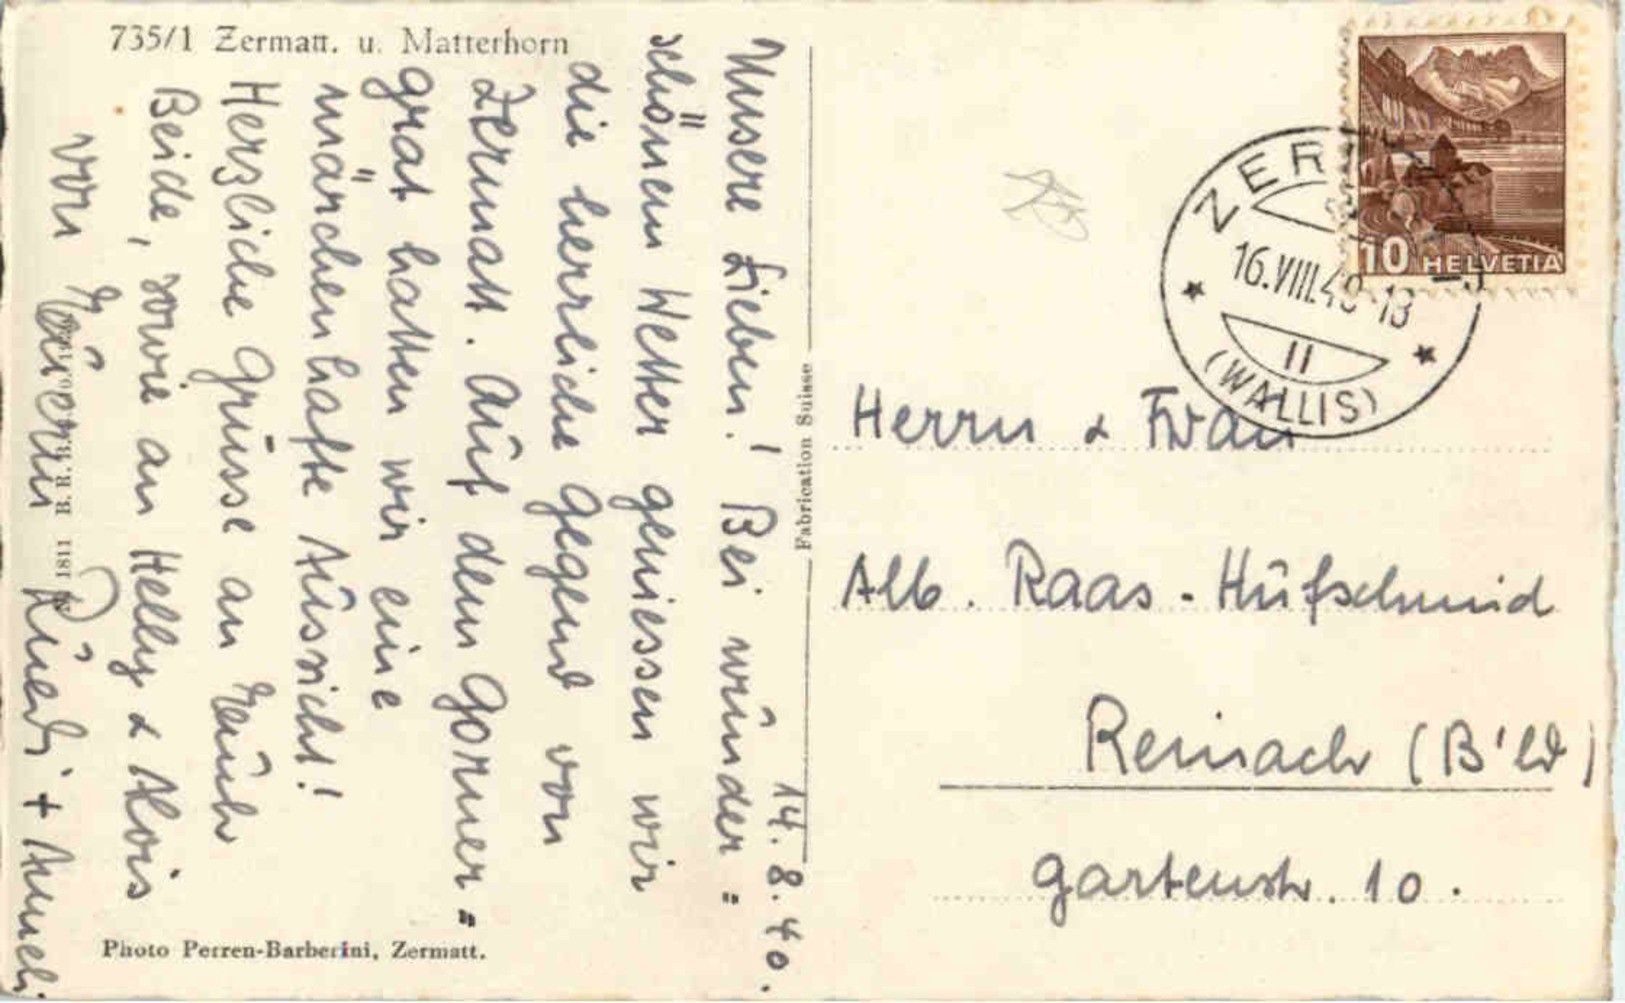 735/1 Zermatt. u. Matterhorn
14. 8. 40.
Unsere Lieben! Bei wunder=
schönem Wetter geniessen wir
die herrliche Gegend von
Zermatt. Auf dem Gorner=
grat hatten wir eine
märchenhafte Aussicht!
Herzliche Grüsse an Euch
Beide, sowie an Helly & Alois
von Euern Ruedi + Anneli.
1811 B. R. B.
Photo Perren-Barberini, Zermatt.
Fabrication Suisse
10 HELVETIA
16.VIII.40-13
II
(WALLIS)
Herrn & Frau
Alb. Raas-Hufschmid
Reinach (B'ld)
Gartenstr. 10.